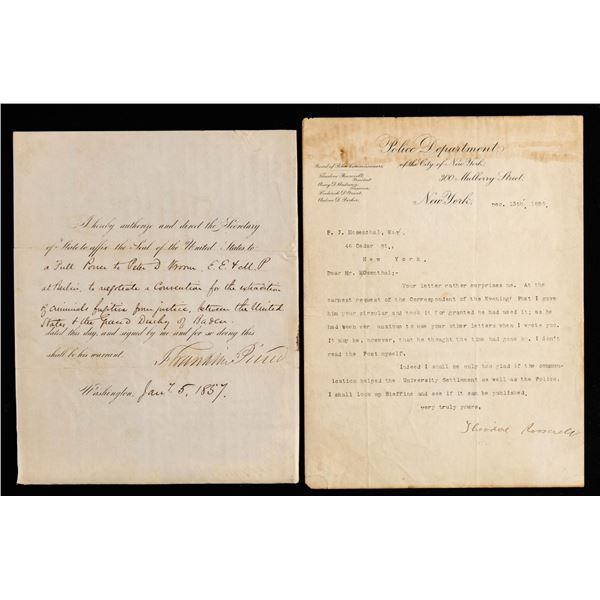 I hereby authorize and direct the Secretary
of State to affix the Seal of the United States to
a Full Power to Peter D Vroom E. E. & M. P
at Berlin, to negotiate a Convention for the extradition
of criminals fugitives from justice, between the United
States & the Grand Duchy of Baden
dated this day, and signed by me and for so doing this
shall be his warrant.
Franklin Pierce
Washington, Jany 5, 1857.
Police Department
of the City of New York.
300 Mulberry Street.
New York, Dec. 13th,
Board of Police Commissioners.
Theodore Roosevelt,
President
Avery D. Andrews,
Frederick D. Grant,
Andrew D. Parker.
46 Cedar St.,
New York
Dear Mr. MOsenthal;-
Your letter rather surprises me. At the
earnest request of the Correspondent of the Evening Post I gave
him your circular, and took it for granted he had used it; as
he had been very anxious to use your other letters when I wrote you.
It may be, however, that he thought the time had gone by. I don't
read the Post myself.
Indeed I shall be only too glad if the commu-
nication helped the University Settlement as well as the Police.
I shall look up and see if it can be published.
very truly yours,
Theodore Roosevelt